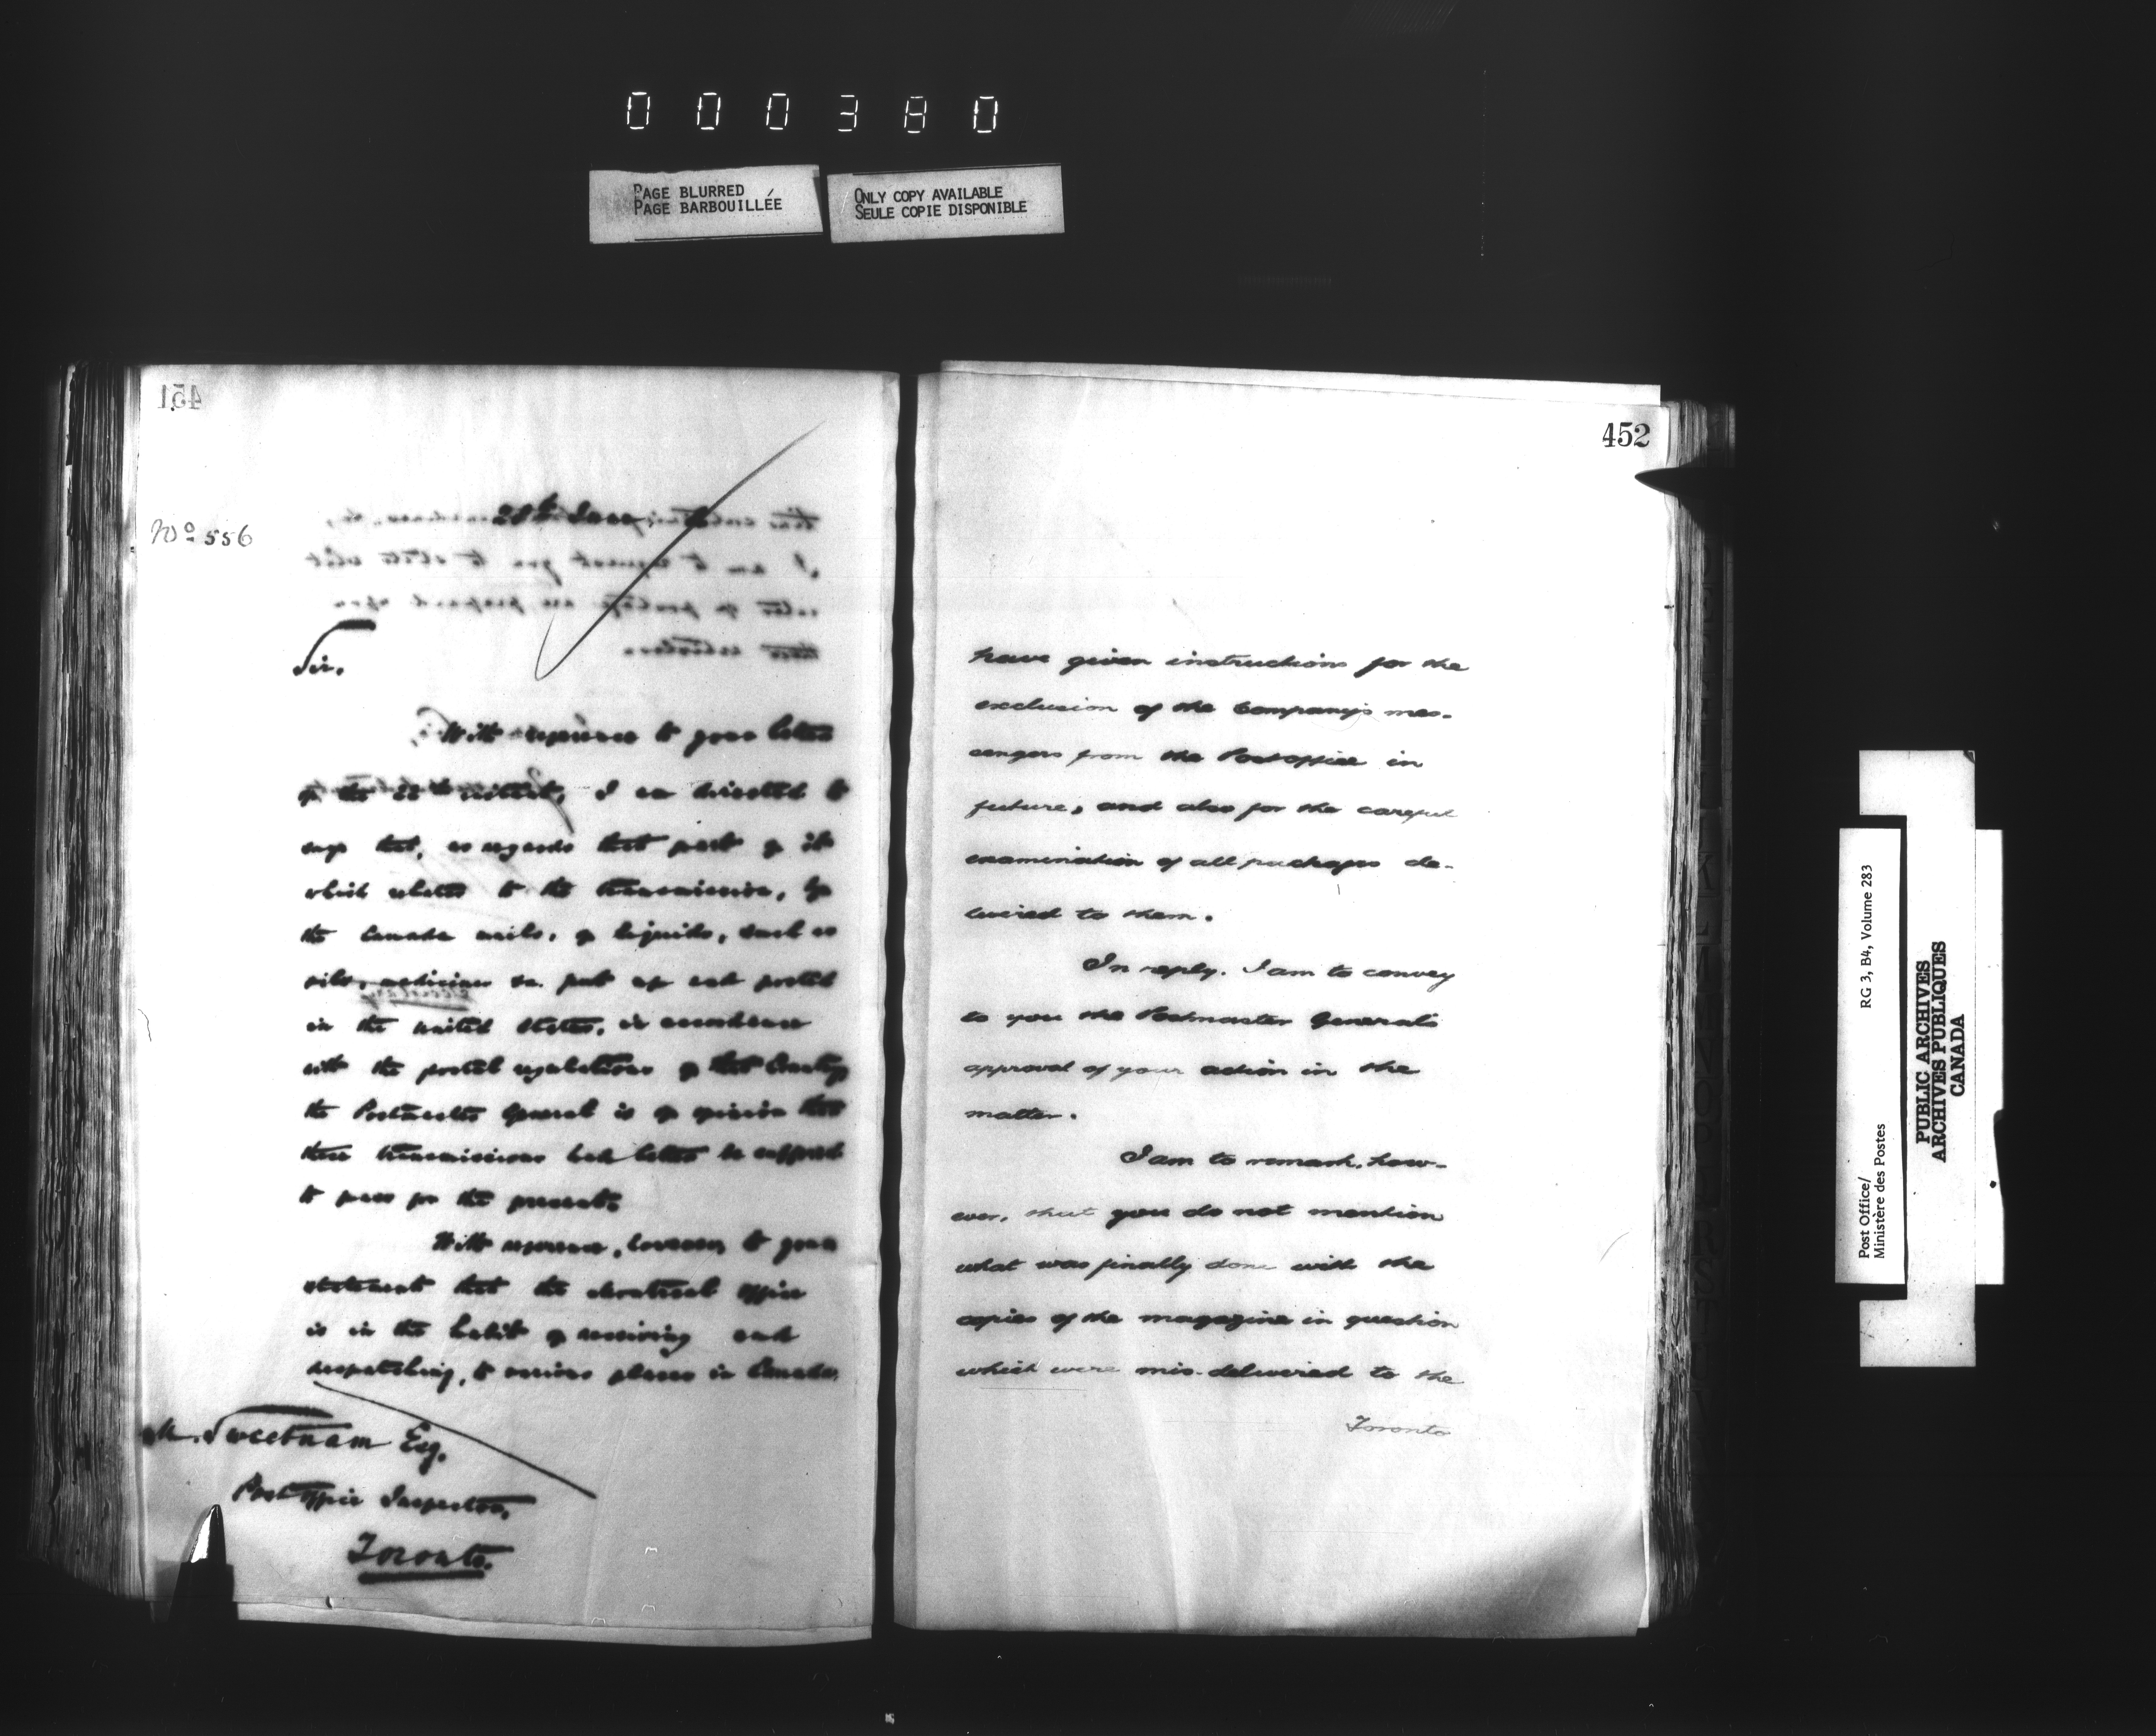 000380
PAGE BLURRED
PAGE BARBOUILLÉE
ONLY COPY AVAILABLE
SEULE COPIE DISPONIBLE
451
No 556
28th
Sir.
With reference to your letter
of the instant, I am directed to
say that, as regards that part of it
which relates to the transmission, by
the Canada mails, of liquids, such as
oils, medicines &c. put up and posted
in the United States, in accordance
with the postal regulations of that Country
the Postmaster General is of opinion that
these transmissions had better be suffered
to pass for the present.
With reference, however, to your
statement that the Montreal Office
is in the habit of receiving and
despatching, to various places in Canada,
M. Sweetnam Esq.
Post Office Inspector,
Toronto.
452
have given instructions for the
exclusion of the Company's mes-
sengers from the Post Office in
future, and also for the careful
examination of all packages de-
livered to them.
In reply. I am to convey
to you the Postmaster General's
approval of your action in the
matter.
I am to remark, how-
ever, that you do not mention
what was finally done with the
copies of the magazine in question
which were mis-delivered to the
Toronto
Post Office/
Ministère des Postes
RG 3, B4, Volume 283
PUBLIC ARCHIVES
ARCHIVES PUBLIQUES
CANADA